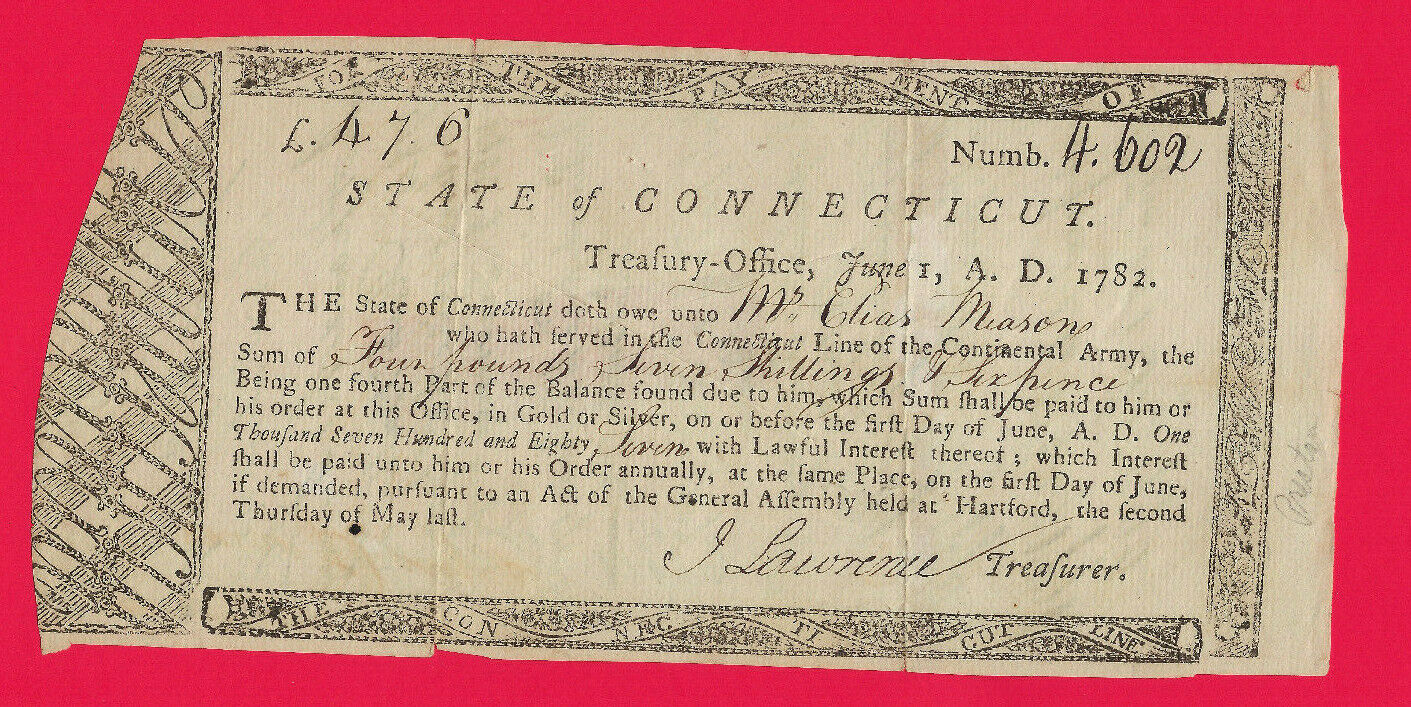 FOR THE PAY MENT OF
£. 4 7. 6
Numb. 4.602
STATE of CONNECTICUT.
Treaſury-Office, June 1, A. D. 1782.
THE State of Connecticut doth owe unto Mr Elias Measom
who hath ſerved in the Connecticut Line of the Continental Army, the
Sum of Four pounds Seven Shillings & Sixpence
Being one fourth Part of the Balance found due to him, which Sum ſhall be paid to him or
his order at this Office, in Gold or Silver, on or before the firſt Day of June, A. D. One
Thouſand Seven Hundred and Eighty Seven with Lawful Intereſt thereof ; which Intereſt
ſhall be paid unto him or his Order annually, at the ſame Place, on the firſt Day of June,
if demanded, purſuant to an Act of the General Aſſembly held at Hartford, the ſecond
Thurſday of May laſt.
J Lawrence Treaſurer.
THE CON NEC TI CUT LINE